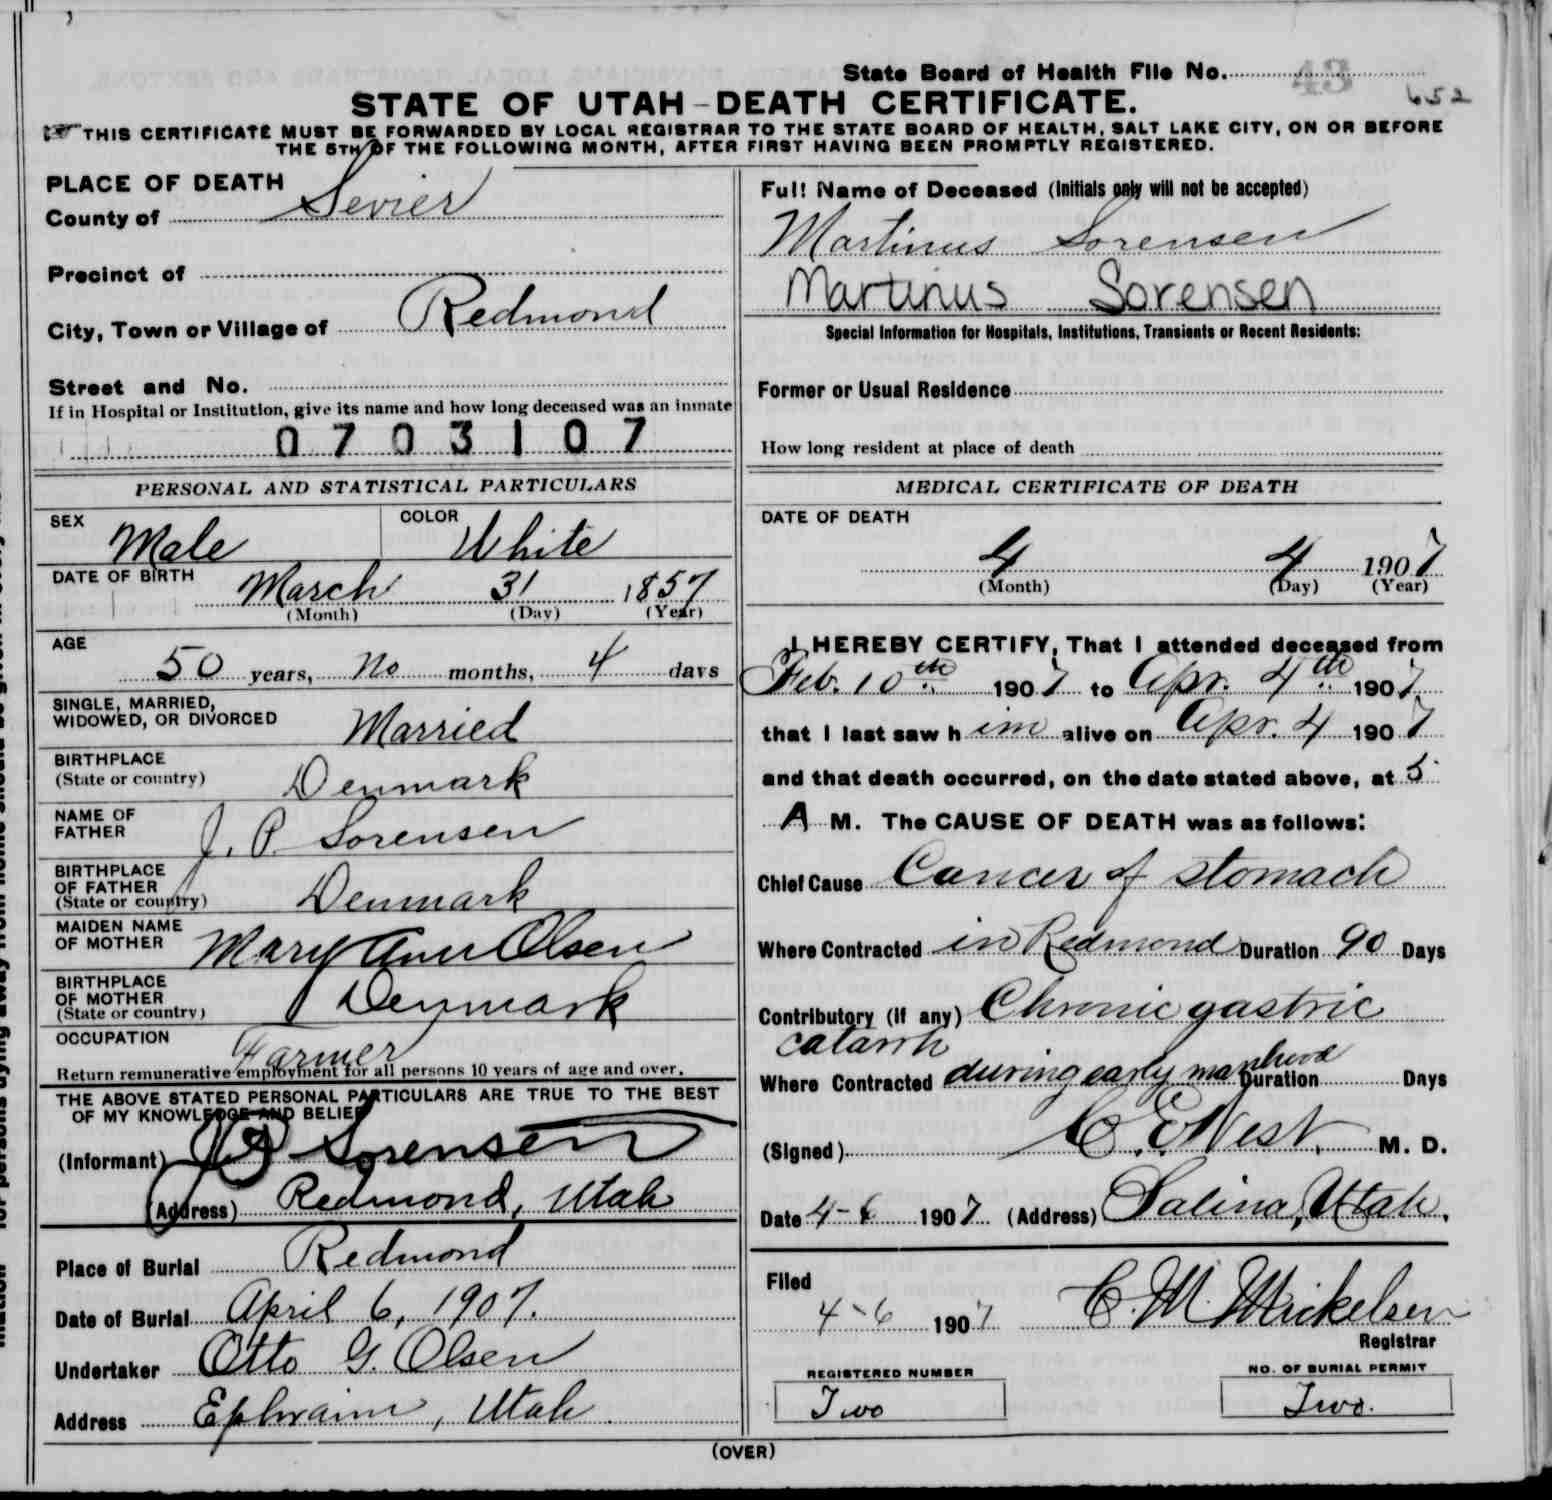 State Board of Health File No. 43 652
STATE OF UTAH-DEATH CERTIFICATE.
THIS CERTIFICATE MUST BE FORWARDED BY LOCAL REGISTRAR TO THE STATE BOARD OF HEALTH, SALT LAKE CITY, ON OR BEFORE
THE 5TH OF THE FOLLOWING MONTH, AFTER FIRST HAVING BEEN PROMPTLY REGISTERED.
PLACE OF DEATH
County of Sevier
Precinct of
City, Town or Village of Redmond
Street and No.
If in Hospital or Institution, give its name and how long deceased was an inmate
0703107
PERSONAL AND STATISTICAL PARTICULARS
SEX Male COLOR White
DATE OF BIRTH March 31 1857
(Month) (Day) (Year)
AGE
50 years, no months, 4 days
SINGLE, MARRIED,
WIDOWED, OR DIVORCED Married
BIRTHPLACE
(State or country) Denmark
NAME OF
FATHER J. P. Sorensen
BIRTHPLACE
OF FATHER
(State or country) Denmark
MAIDEN NAME
OF MOTHER Mary Ann Olsen
BIRTHPLACE
OF MOTHER
(State or country) Denmark
OCCUPATION Farmer
Return remunerative employment for all persons 10 years of age and over.
THE ABOVE STATED PERSONAL PARTICULARS ARE TRUE TO THE BEST
OF MY KNOWLEDGE AND BELIEF
(Informant) Sorensen
(Address) Redmond, Utah
Place of Burial Redmond
Date of Burial April 6, 1907.
Undertaker Otto G. Olsen
Address Ephraim, Utah
Full Name of Deceased (Initials only will not be accepted)
Martinus Sorensen
Martinus Sorensen
Special Information for Hospitals, Institutions, Transients or Recent Residents:
Former or Usual Residence
How long resident at place of death
MEDICAL CERTIFICATE OF DEATH
DATE OF DEATH
4 4 1907
(Month) (Day) (Year)
I HEREBY CERTIFY, That I attended deceased from
Feb. 10th 1907 to Apr. 4th 1907
that I last saw him alive on Apr. 4 1907
and that death occurred, on the date stated above, at 5
A M. The CAUSE OF DEATH was as follows:
Chief Cause Cancer of stomach
Where Contracted in Redmond Duration 90 Days
Contributory (if any) Chronic gastric
catarrh
Where Contracted during early manhood Duration Days
(Signed) C. E. West, M. D.
Date 4-6 1907 (Address) Salina, Utah.
Filed
4-6 1907 C. M. Mickelsen
Registrar
REGISTERED NUMBER
Two
NO. OF BURIAL PERMIT
Two.
(OVER)